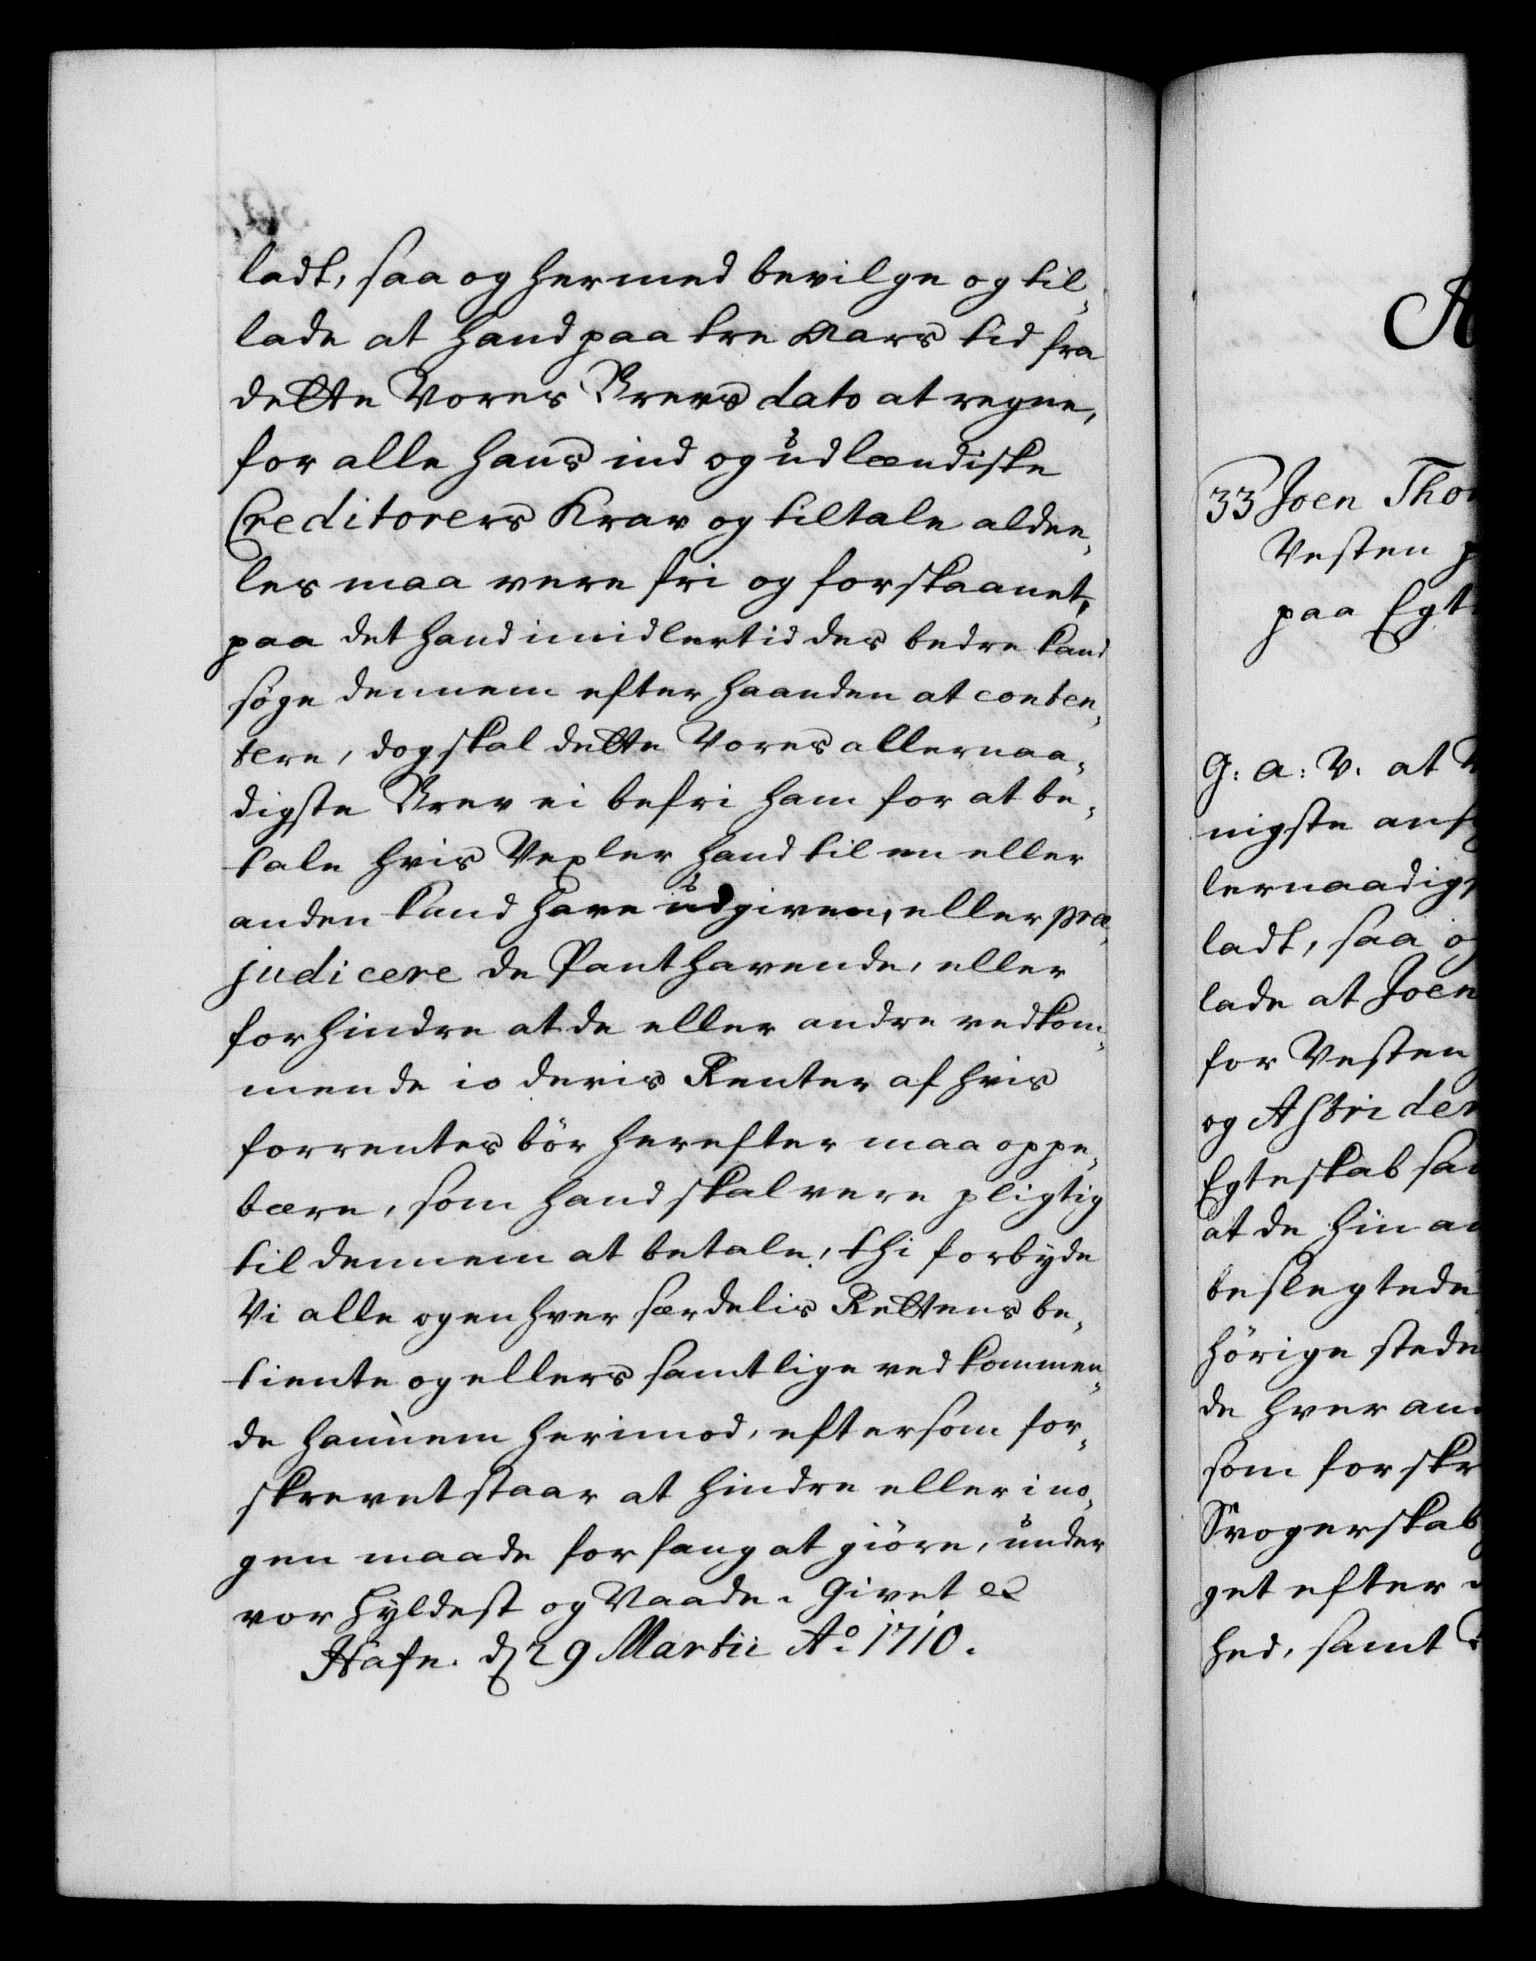 ladt, saa og hermed bevilge og til¬
lade at hand paa tre aars tid fra
dette Vores Brevs dato at regne,
for alle hans ind og udlændiske
Creditorers Krav og tiltale aldee¬
les maa vere fri og forskaanet,
paa det hand imidlertid des bedre kand
søge dennem efter haanden at conten¬
tere, dog skal dette Vores allernaa¬
digste Brev ei befri ham for at be¬
tale hvis Vexler hand til en eller
anden kand have udgiven, eller præ¬
judicere de Panthavende, eller
forhindre at de eller andre vedkom¬
mende io deris Renter af hvis
forrentes bör herefter maa oppe¬
bære, som hand skal vere pligtig
til dennem at betale, thi forbyde
Vi alle og en hver særdelis Rettens be¬
tiente og ellers samtlige vedkommen¬
de hannem herimod, eftersom for¬
skrevet staar at hindre eller i no¬
gen maade forfang at giöre, under
vor Hyldest og Naade. Givet &c
Hafn. d 29 Martii Ao 1710.
33 Joen Tho
Vesten p
paa Egt
G: a: V. at V
nigste ans
lernaadigs
ladt, saa o
lade at Joen
for Vesten
og Astri den
Egteskab sa
at de hin a
beslegtede
hörige stede
de hver an
som forskr
Svogerskab
get efter
hed, samt